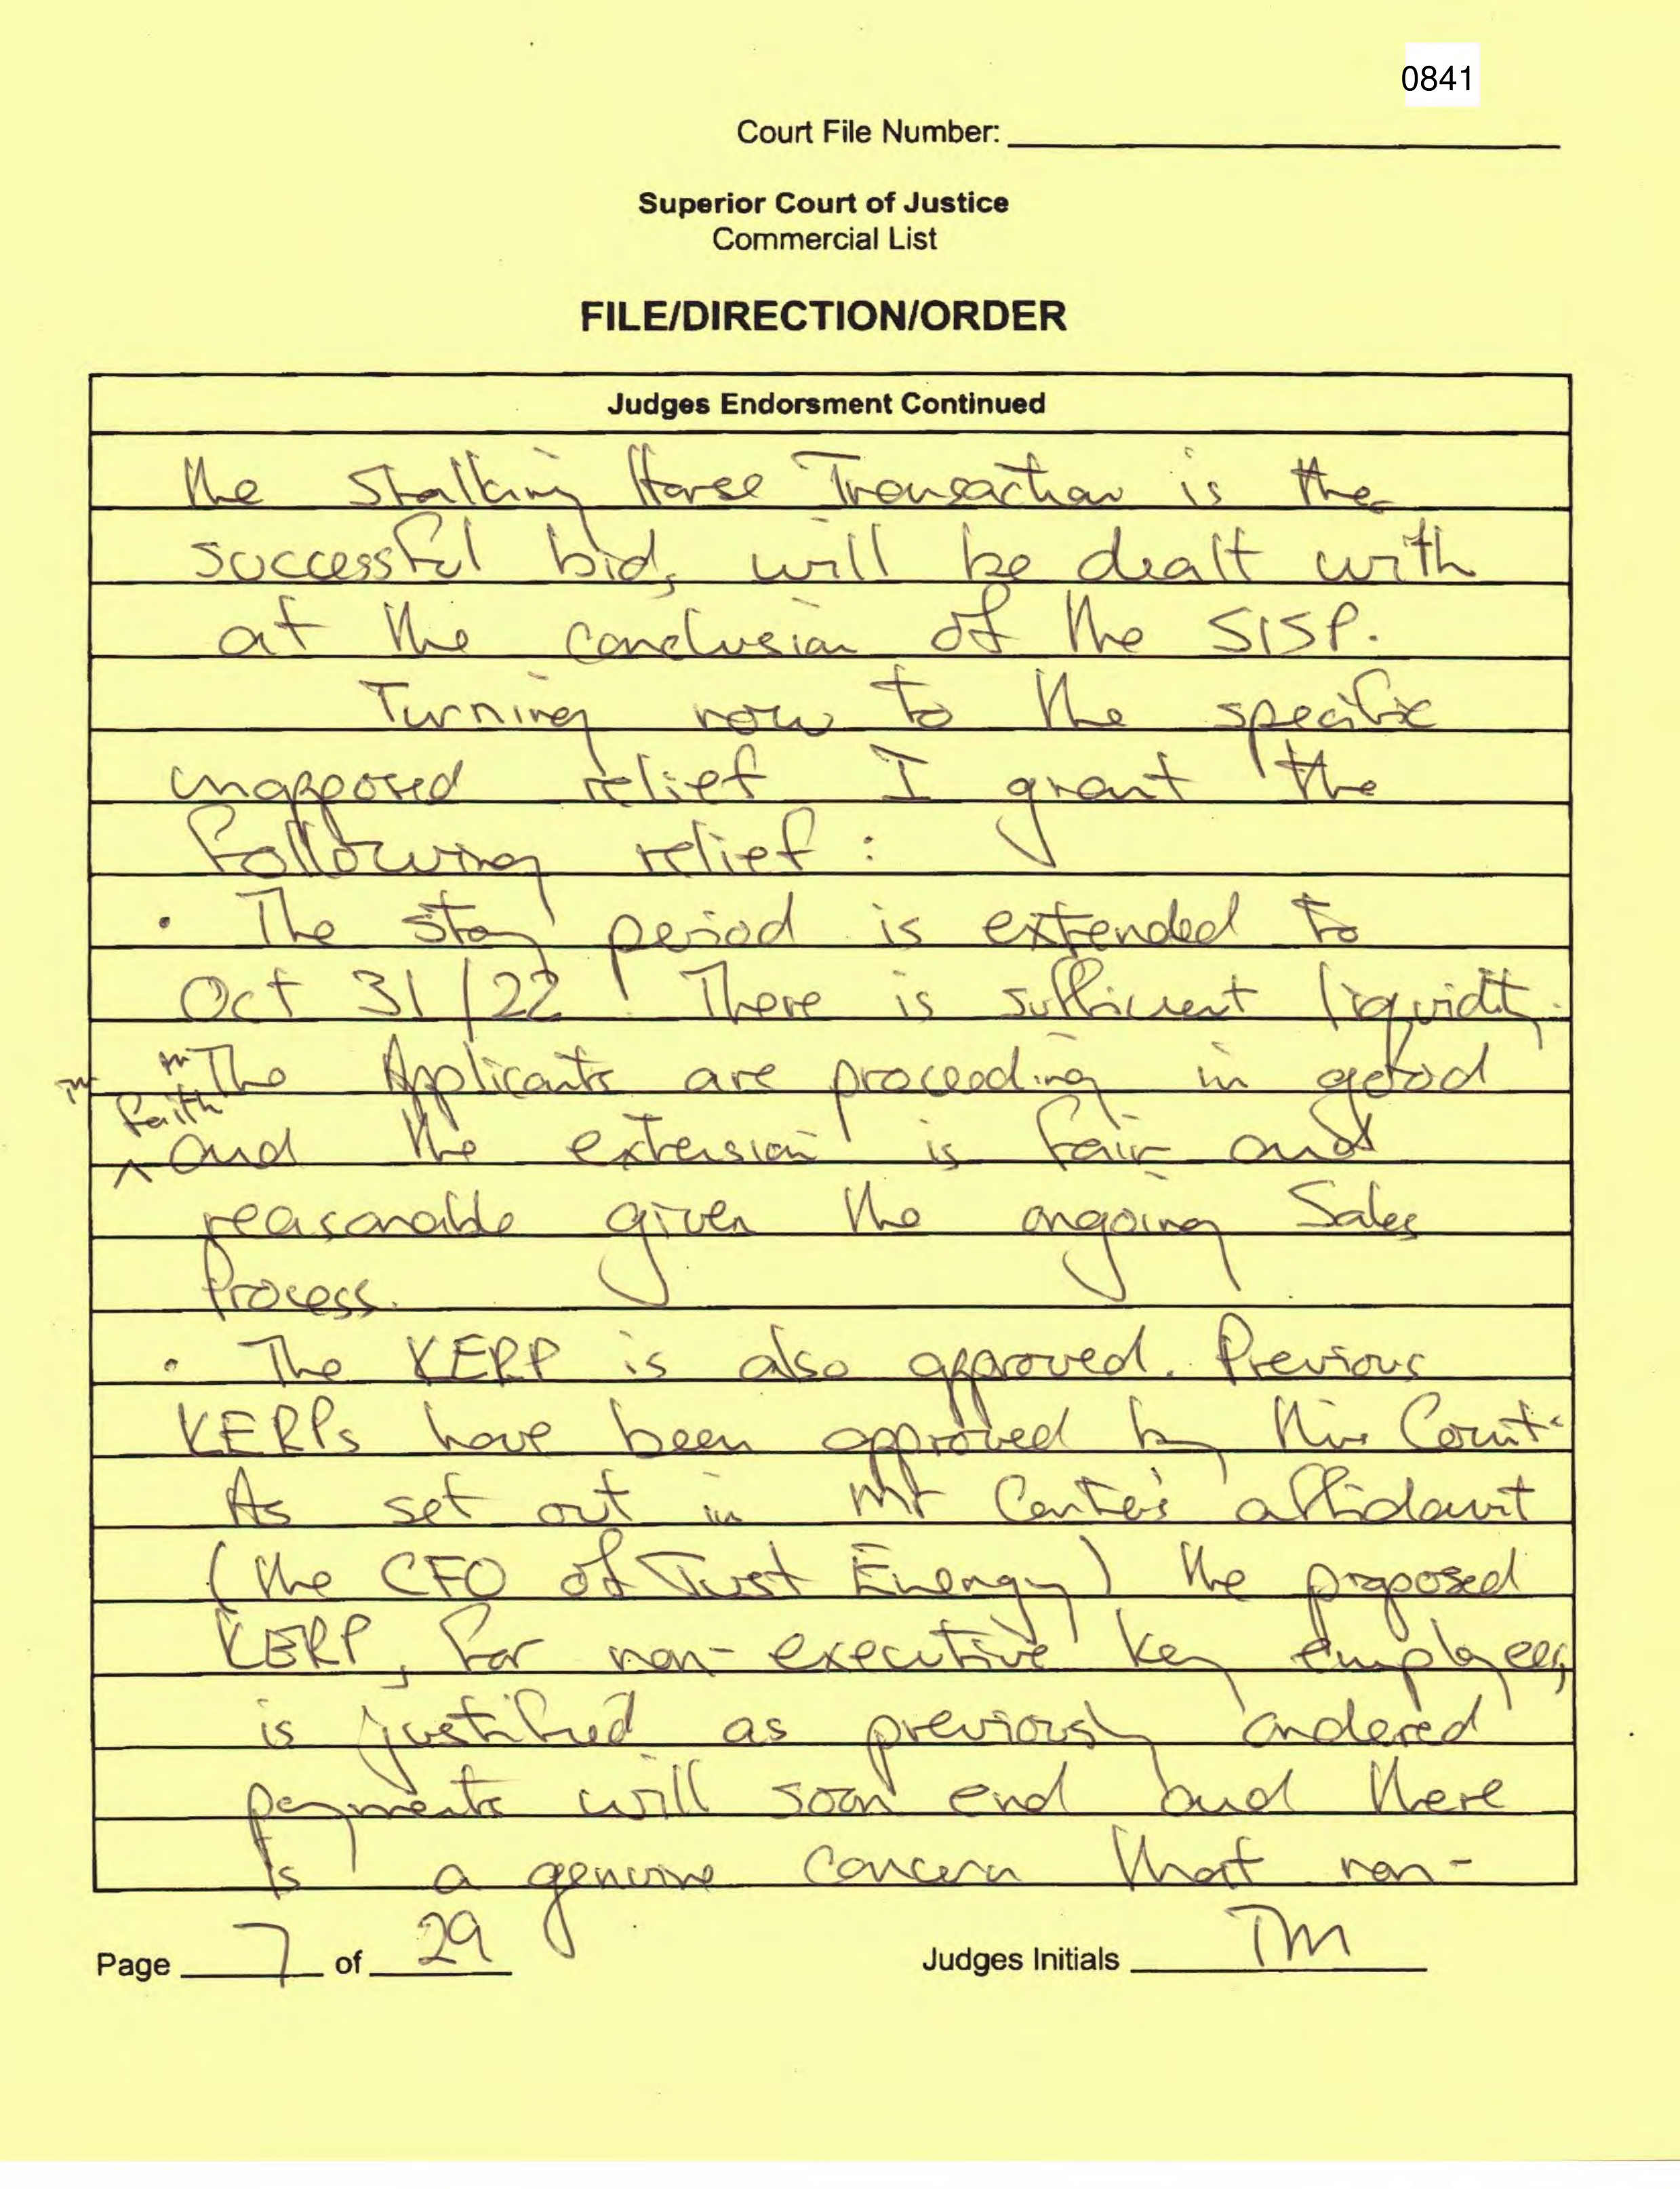 0841
Court File Number:
Superior Court of Justice
Commercial List
FILE/DIRECTION/ORDER
Judges Endorsment Continued
the Stalking Horse Transaction is the
successful bid, will be dealt with
at the conclusion of the SISP.
Turning now to the specific
unopposed relief I grant the
following relief:
· The stay period is extended to
Oct 31/22. There is sufficient liquidity.
The Applicants are proceeding in good
faith
^ and the extension is fair and
reasonable given the ongoing Sales
Process.
· The KERP is also approved. Previous
KERPs have been approved by this Court.
As set out in Mr Carter's affidavit
(the CFO of Just Energy) the proposed
KERP, for non-executive key employees,
is justified as previously ordered
payments will soon end and there
is a genuine concern that non-
Page 7 of 29
Judges Initials TM